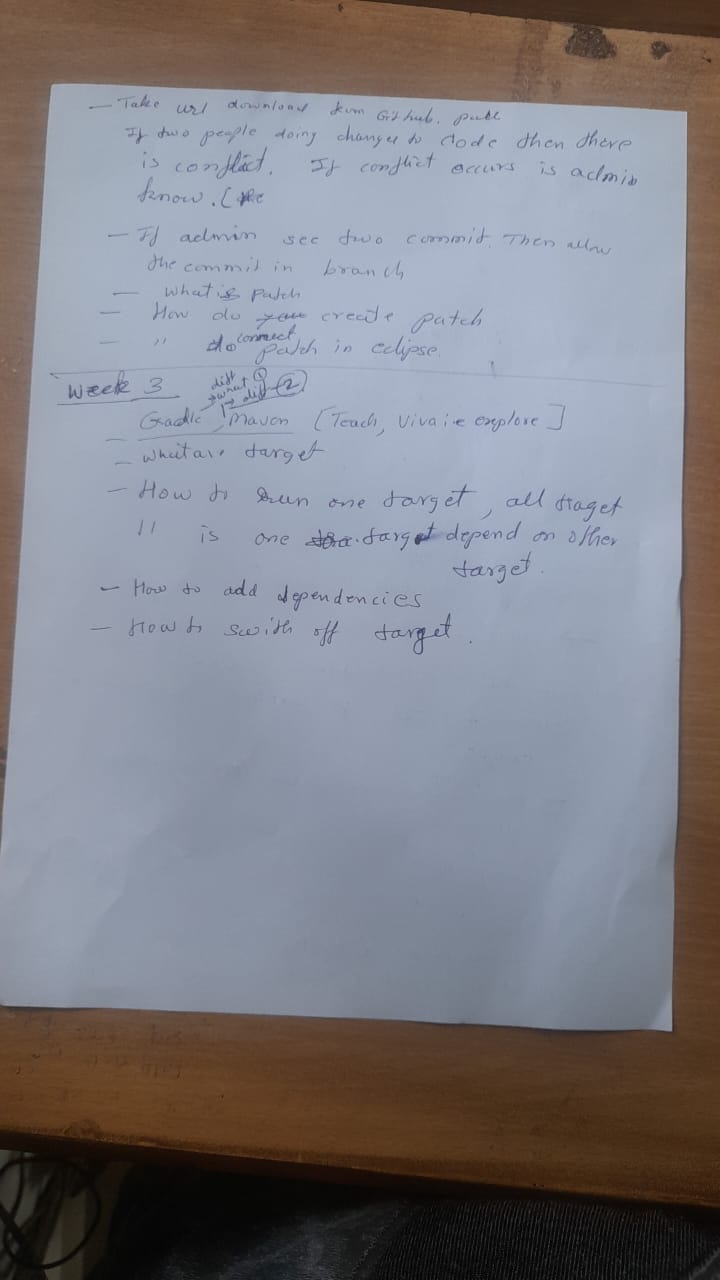 — Take url download from GitHub. pull
If two people doing changes to code then there
is conflict. If conflict occurs is admin
know. (
— If admin see two commit. Then allow
the commit in branch
— What is Patch
— How do create patch
— " connect patch in eclipse.
Week 3
diff ①
→ what
→ diff ②
— Gradle, Maven [Teach, Viva i.e explore]
— What are target
— How to run one target, all traget
" is one target depend on other
target.
— How to add dependencies
— How to swith off target.